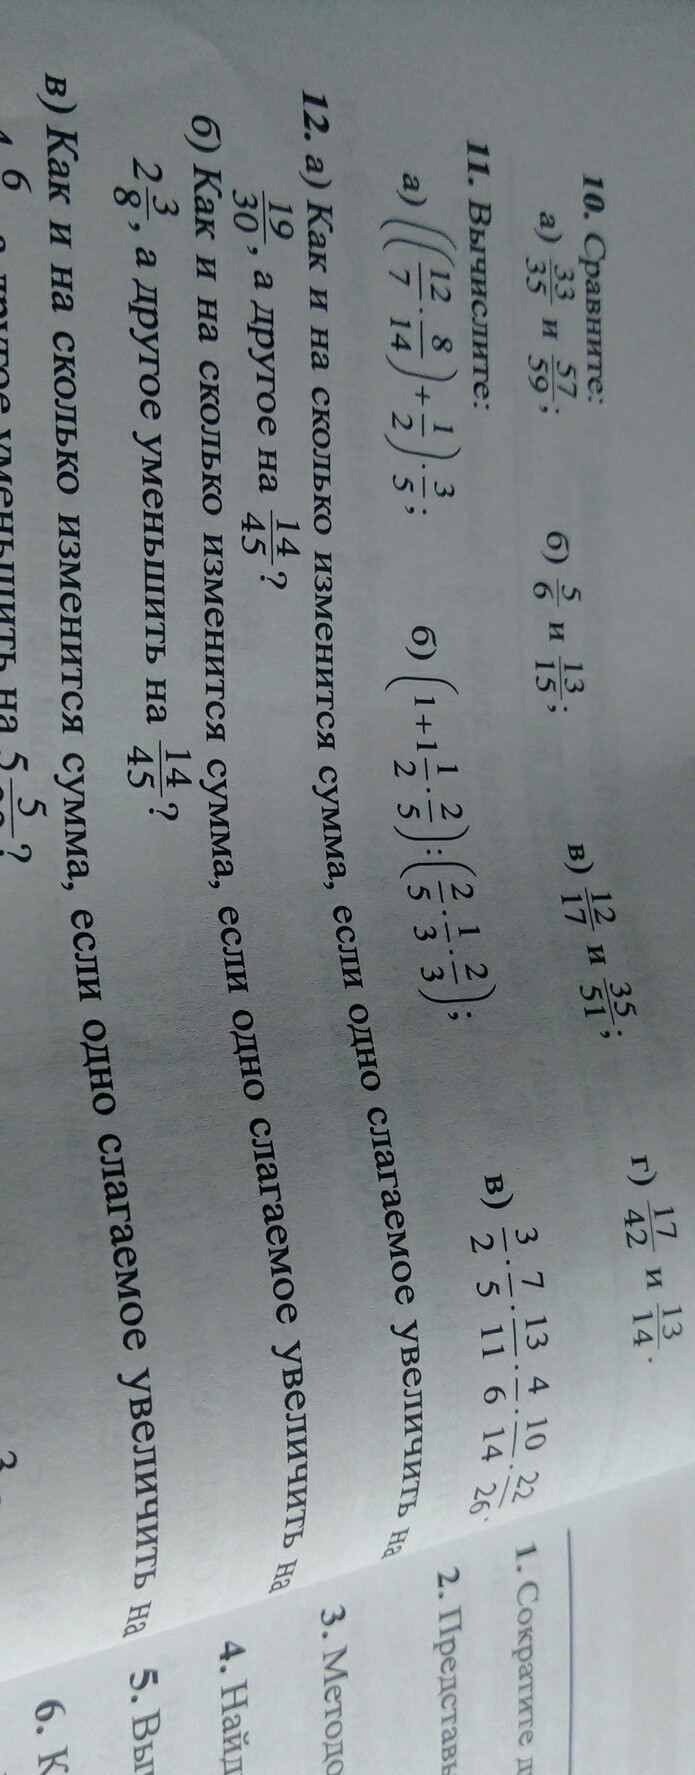 10. Сравните:
а) 33/35 и 57/59; б) 5/6 и 13/15; в) 12/17 и 35/51; г) 17/42 и 13/14.
11. Вычислите:
а) ((12/7 · 8/14) + 1/2) · 3/5; б) (1 + 1 1/2 · 2/5) : (2/5 · 1/3 · 2/3); в) 3/2 · 7/5 · 13/11 · 4/6 · 10/14 · 22/26.
12. а) Как и на сколько изменится сумма, если одно слагаемое увеличить на
19/30, а другое на 14/45?
б) Как и на сколько изменится сумма, если одно слагаемое увеличить на
2 3/8, а другое уменьшить на 14/45?
в) Как и на сколько изменится сумма, если одно слагаемое увеличить на
1. Сократите
2.
3.
4.
5.
6.